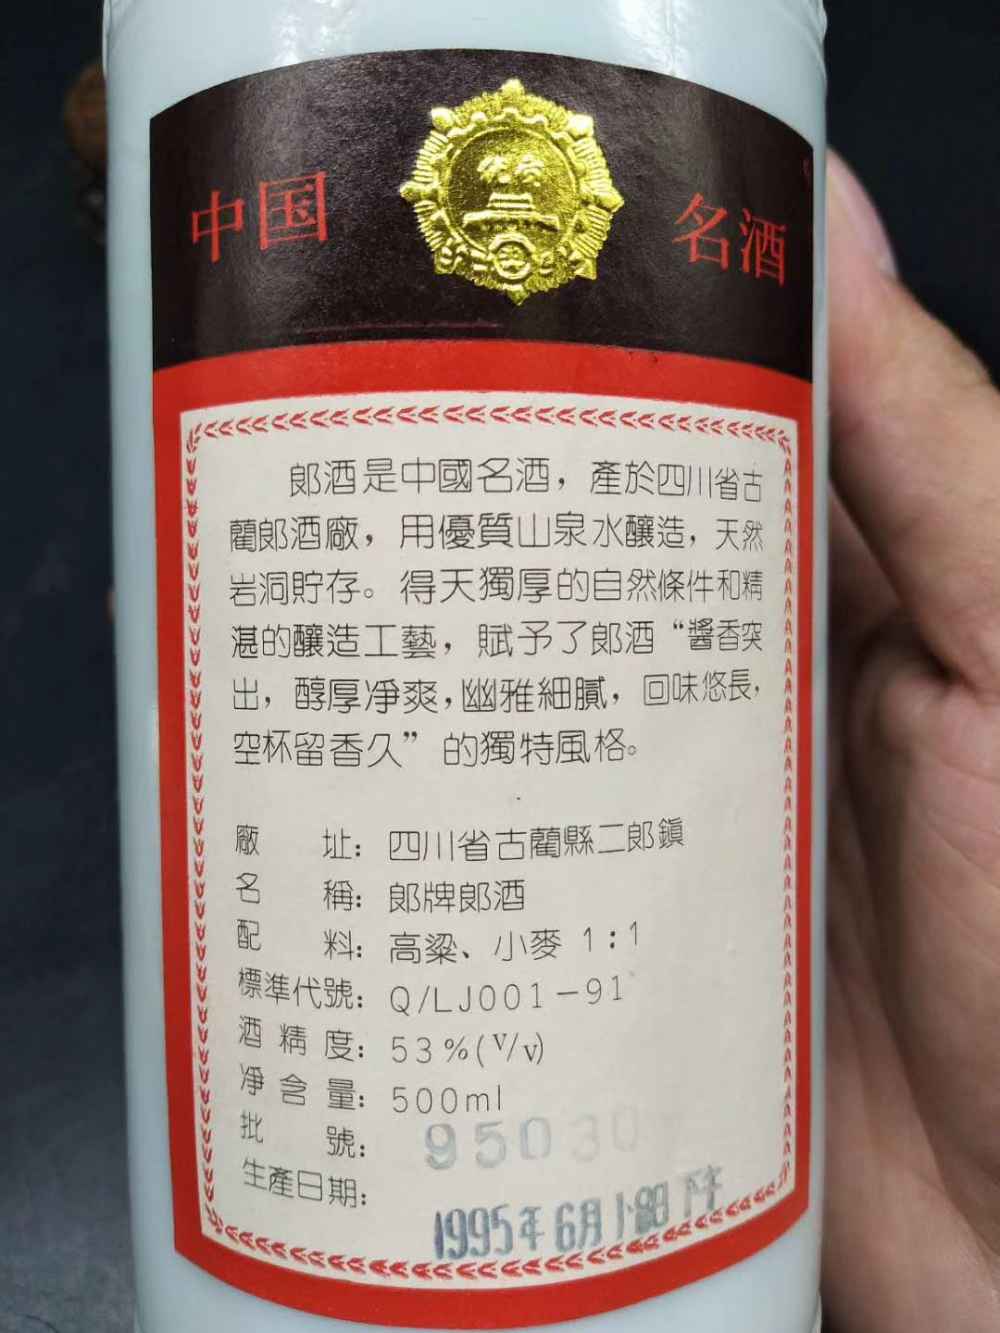 中国 名酒
郎酒是中國名酒，產於四川省古
藺郎酒廠，用優質山泉水釀造，天然
岩洞貯存。得天獨厚的自然條件和精
湛的釀造工藝，賦予了郎酒“醬香突
出，醇厚净爽，幽雅細膩，回味悠長，
空杯留香久”的獨特風格。
廠址：四川省古藺縣二郎鎮
名稱：郎牌郎酒
配料：高粱、小麥 1:1
標準代號：Q/LJ001-91
酒精度：53%(V/v)
净含量：500ml
批號：95030
生產日期：1995年6月18日